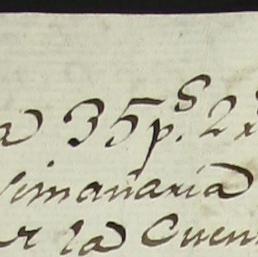 a 35 p.s 2 r
Simanaria
er la Cuen